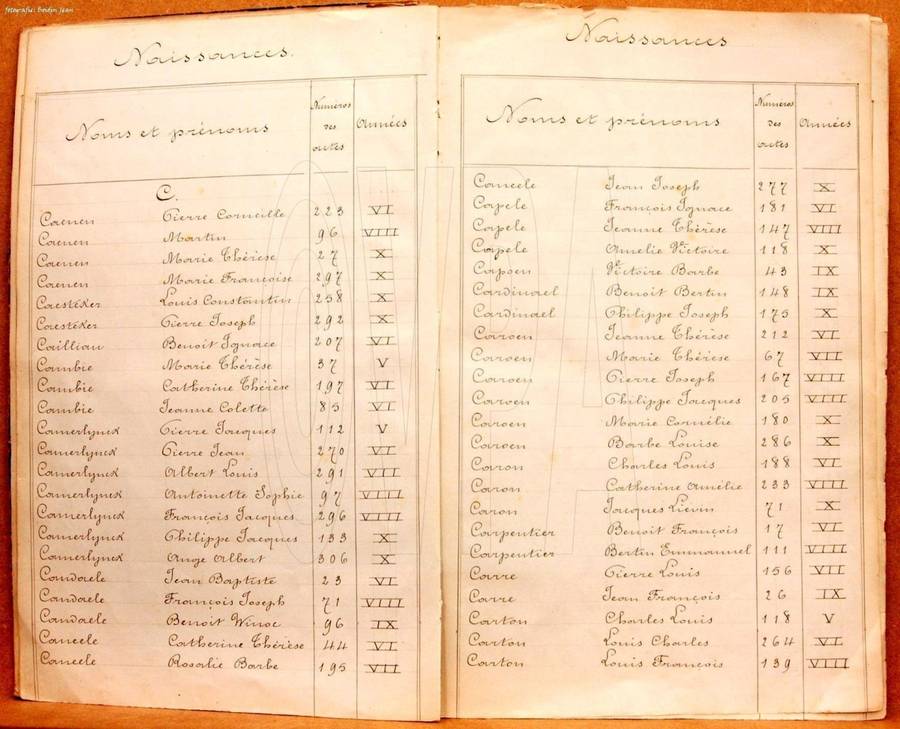 fotografie: Boidin Jean
Naissances.
Noms et prénoms Numéros des actes Années
C.
Caenen Pierre Corneille 223 VI
Caenen Martin 96 VIII
Caenen Marie Thérèse 27 X
Caenen Marie Françoise 297 X
Caesteker Louis Constantin 258 X
Caesteker Pierre Joseph 292 X
Cailliau Benoit Ignace 207 VI
Cambie Marie Thérèse 37 V
Cambie Catherine Thérèse 197 VI
Cambie Jeanne Colette 85 VI
Camerlynck Pierre Jacques 112 V
Camerlynck Pierre Jean 270 VI
Camerlynck Albert Louis 291 VII
Camerlynck Antoinette Sophie 97 VIII
Camerlynck François Jacques 296 VIII
Camerlynck Philippe Jacques 133 X
Camerlynck Ange Albert 306 X
Candaele Jean Baptiste 23 VI
Candaele François Joseph 71 VIII
Candaele Benoit Winoc 96 IX
Caneele Catherine Thérèse 44 VI
Caneele Rosalie Barbe 195 VII
Naissances
Noms et prénoms Numéros des actes Années
Caneele Jean Joseph 277 X
Capele François Ignace 181 VI
Capele Jeanne Thérèse 147 VIII
Capele Amelie Victoire 118 X
Capoen Victoire Barbe 43 IX
Cardinael Benoit Bertin 148 IX
Cardinael Philippe Joseph 175 X
Caroen Jeanne Thérèse 212 VI
Caroen Marie Thérèse 67 VII
Caroen Pierre Joseph 167 VIII
Caroen Philippe Jacques 205 VIII
Caroen Marie Cornélie 180 X
Caroen Barbe Louise 286 X
Caron Charles Louis 188 VI
Caron Catherine Amélie 233 VIII
Caron Jacques Lievin 71 X
Carpentier Benoit François 17 VI
Carpentier Bertin Emmanuel 111 VIII
Carre Pierre Louis 156 VII
Carre Jean François 26 IX
Carton Charles Louis 118 V
Carton Louis Charles 264 VI
Carton Louis François 139 VIII